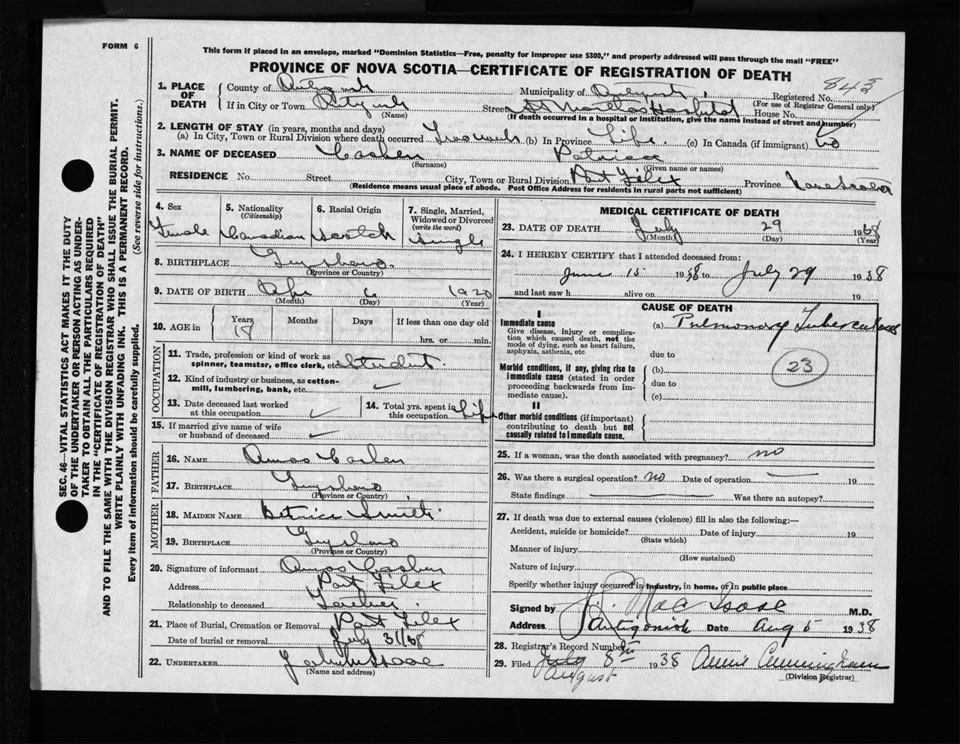 FORM 6
This form if placed in an envelope, marked "Dominion Statistics—Free, penalty for improper use $300," and properly addressed will pass through the mail "FREE"
PROVINCE OF NOVA SCOTIA—CERTIFICATE OF REGISTRATION OF DEATH
843
1. PLACE OF DEATH
County of
Municipality of
Registered No.
(For use of Registrar General only)
If in City or Town
(Name)
Street St Martha's Hospital House No.
(If death occurred in a hospital or institution, give the name instead of street and number)
2. LENGTH OF STAY (in years, months and days)
(a) In City, Town or Rural Division where death occurred Two weeks (b) In Province Life. (c) In Canada (if immigrant) No
3. NAME OF DECEASED
(Surname)
(Given name or names)
RESIDENCE No. Street City, Town or Rural Division Port Felix Province Nova Scotia
(Residence means usual place of abode. Post Office Address for residents in rural parts not sufficient)
4. Sex Female
5. Nationality (Citizenship) Canadian
6. Racial Origin Scotch
7. Single, Married, Widowed or Divorced (write the word) Single
8. BIRTHPLACE Guysboro.
(Province or Country)
9. DATE OF BIRTH 6 1920
(Month) (Day) (Year)
10. AGE in Years Months Days If less than one day old
hrs. or min.
OCCUPATION
11. Trade, profession or kind of work as spinner, teamster, office clerk, etc. Student
12. Kind of industry or business, as cotton-mill, lumbering, bank, etc. ✓
13. Date deceased last worked at this occupation ✓
14. Total yrs. spent in this occupation Life
15. If married give name of wife or husband of deceased ✓
FATHER
16. NAME Amos
17. BIRTHPLACE Guysboro
(Province or Country)
MOTHER
18. MAIDEN NAME Smith
19. BIRTHPLACE Guysboro
(Province or Country)
20. Signature of informant Amos
Address Port Felix
Relationship to deceased Father.
21. Place of Burial, Cremation or Removal Port Felix
Date of burial or removal July 31/38
22. UNDERTAKER
(Name and address)
MEDICAL CERTIFICATE OF DEATH
23. DATE OF DEATH July 29 1938
(Month) (Day) (Year)
24. I HEREBY CERTIFY that I attended deceased from:
June 15 1938 to July 29 1938
and last saw h alive on 19
CAUSE OF DEATH
I
Immediate cause
Give disease, injury or complication which caused death, not the mode of dying, such as heart failure, asphyxia, asthenia, etc
(a) Pulmonary Tuberculosis
due to
Morbid conditions, if any, giving rise to immediate cause (stated in order proceeding backwards from immediate cause).
(b)
due to
(c)
23
II
Other morbid conditions (if important) contributing to death but not causally related to immediate cause.
25. If a woman, was the death associated with pregnancy? no
26. Was there a surgical operation? no Date of operation 19
State findings Was there an autopsy?
27. If death was due to external causes (violence) fill in also the following:—
Accident, suicide or homicide? Date of injury 19
(State which)
Manner of injury
(How sustained)
Nature of injury
Specify whether injury occurred in industry, in home, or in public place
Signed by Mac Isaac M.D.
Address Antigonish Date Aug 5 1938
28. Registrar's Record Number
29. Filed July 8th 1938 Annie Cunningham
August
(Division Registrar)
SEC. 46—VITAL STATISTICS ACT MAKES IT THE DUTY
OF THE UNDERTAKER OR PERSON ACTING AS UNDER-
TAKER TO OBTAIN ALL THE PARTICULARS REQUIRED
IN THE "CERTIFICATE OF REGISTRATION OF DEATH"
AND TO FILE THE SAME WITH THE DIVISION REGISTRAR WHO SHALL ISSUE THE BURIAL PERMIT.
WRITE PLAINLY WITH UNFADING INK. THIS IS A PERMANENT RECORD.
Every item of information should be carefully supplied. (See reverse side for instructions.)